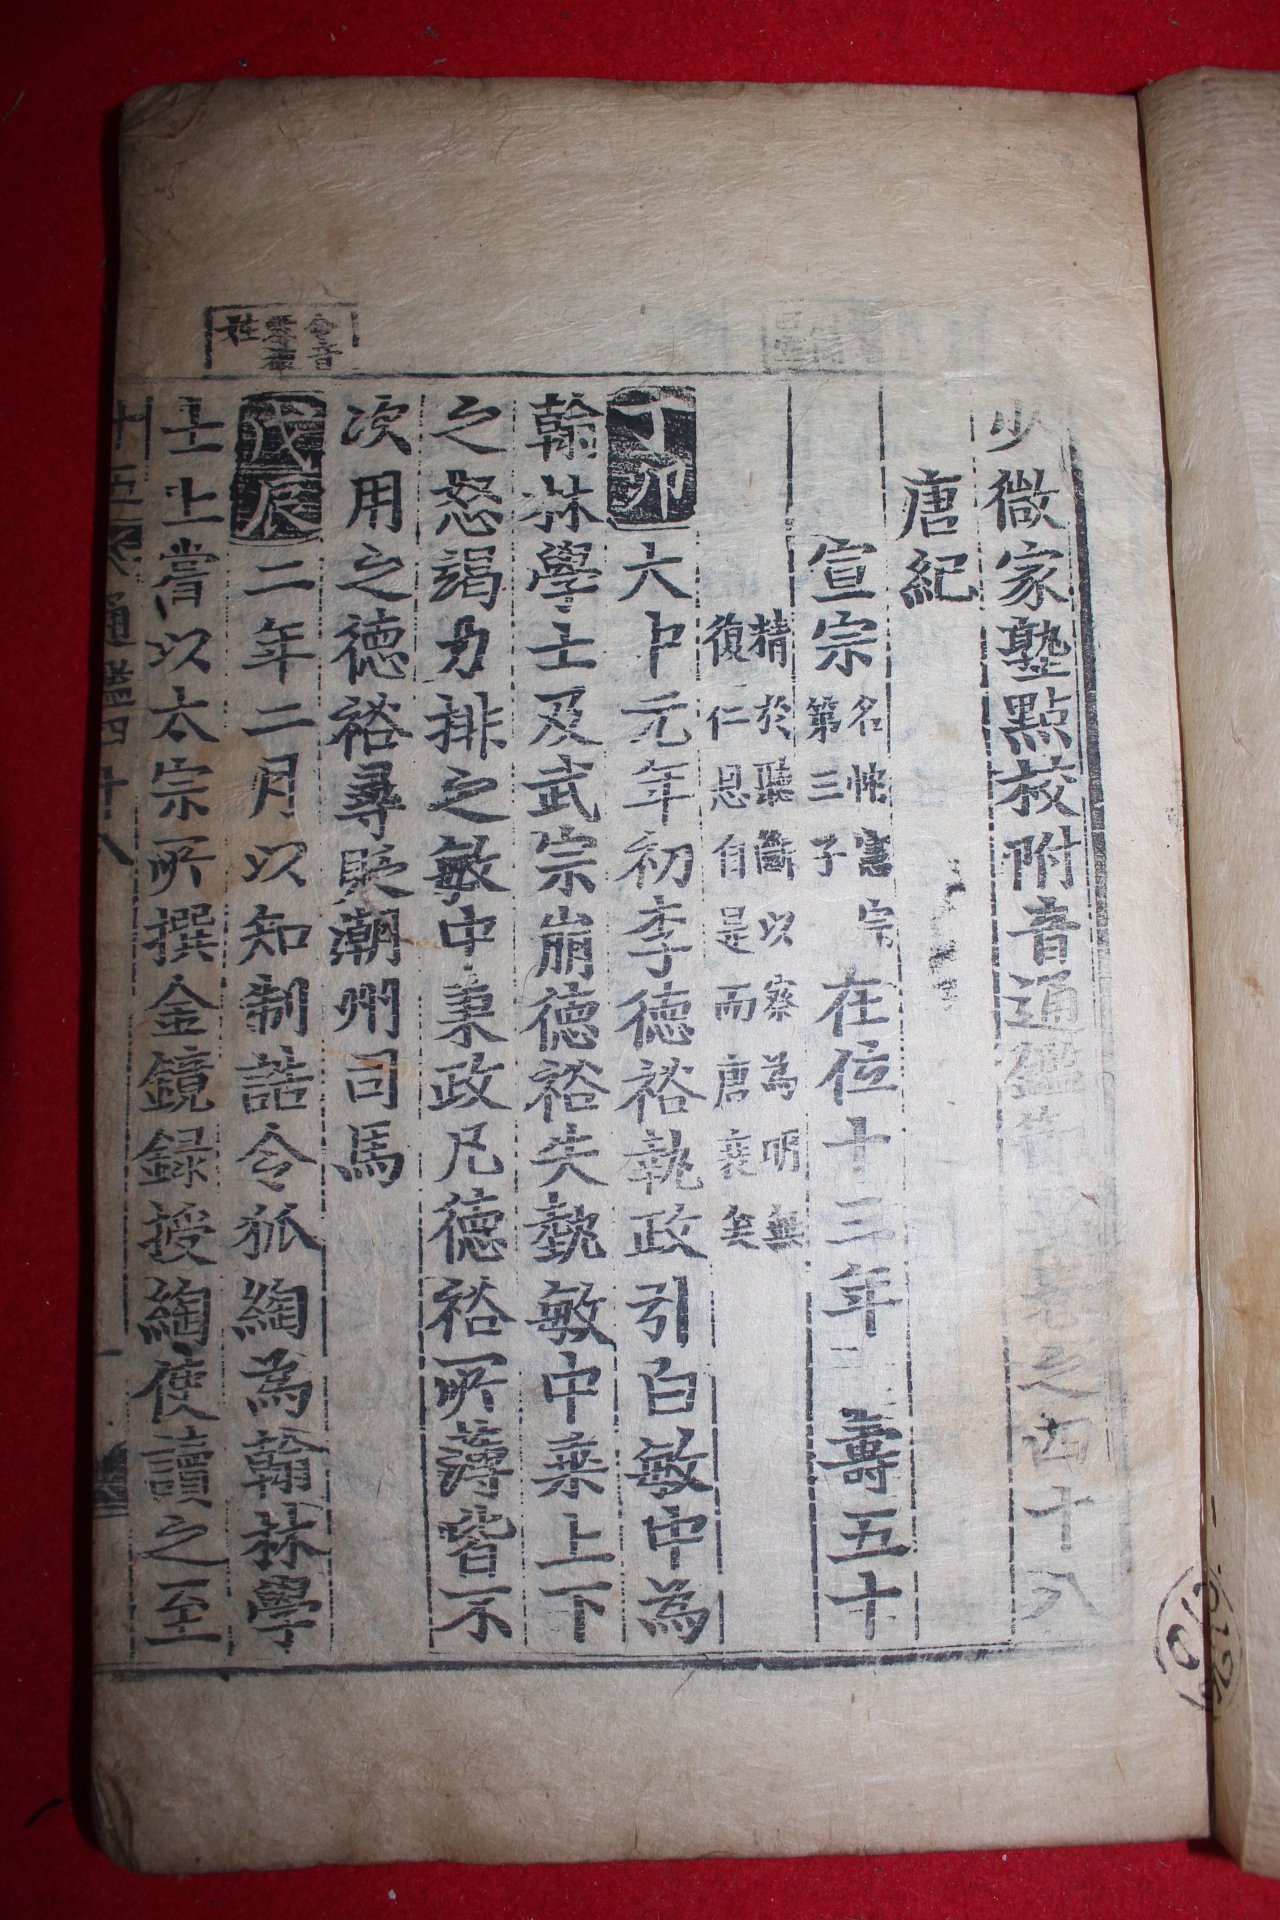 少微家塾點校附音通鑑節要卷之四十八
唐紀
宣宗 名忱憲宗
第三子 在位十三年 壽五十
精於聽斷以察為明無
復仁恩自是而唐衰矣
丁卯 大中元年初李德裕執政引白敏中為
翰林學士及武宗崩德裕失埶敏中乗上下
之怒竭力排之敏中秉政凡德裕所薄皆不
次用之德裕尋貶潮州司馬
令音
零複
姓
戊辰 二年二月以知制誥令狐綯為翰林學
士上嘗以太宗所撰金鏡録授綯使讀之至
通鑑四十八